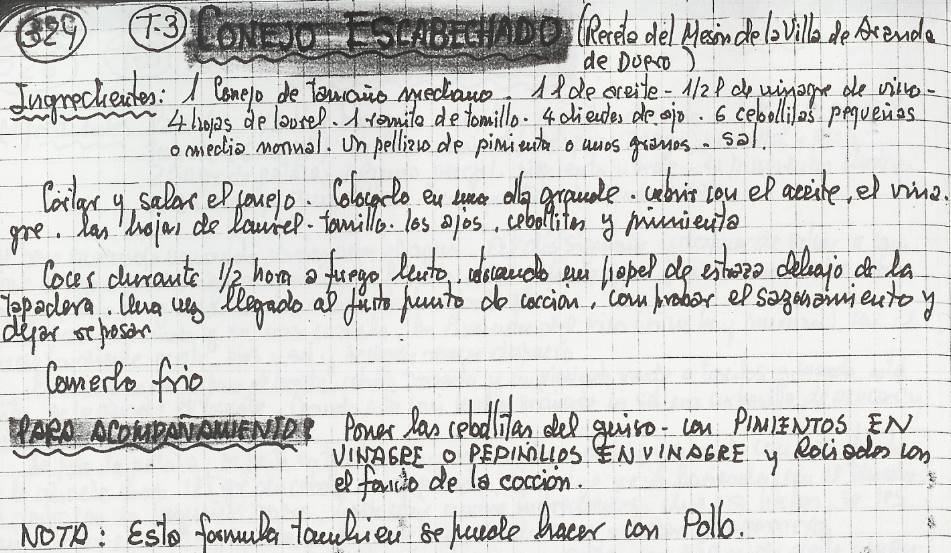 329 T-3 CONEJO ESCABECHADO (Receta del Mesón de la Villa de Aranda
de Duero)
Ingredientes: 1 Conejo de tamaño mediano. 1 l de aceite - 1/2 l de vinagre de vino -
4 hojas de laurel. 1 ramito de tomillo. 4 dientes de ajo. 6 cebollitas pequeñas
o media normal. Un pellizco de pimienta o unos granos - sal.
Cortar y salar el conejo. Colocarlo en una olla grande. cubrir con el aceite, el vina-
gre. las hojas de laurel - tomillo. los ajos, cebollitas y pimienta
Cocer durante 1/2 hora a fuego lento, colocando un papel de estraza debajo de la
tapadera. Una vez llegado al justo punto de cocción, comprobar el sazonamiento y
dejar reposar
Comerlo frio
PARA ACOMPAÑAMIENTO: Poner las cebollitas del guiso - con PIMIENTOS EN
VINAGRE O PEPINILLOS EN VINAGRE y Rociados con
el fondo de la cocción.
NOTA: Esta formula tambien se puede hacer con Pollo.